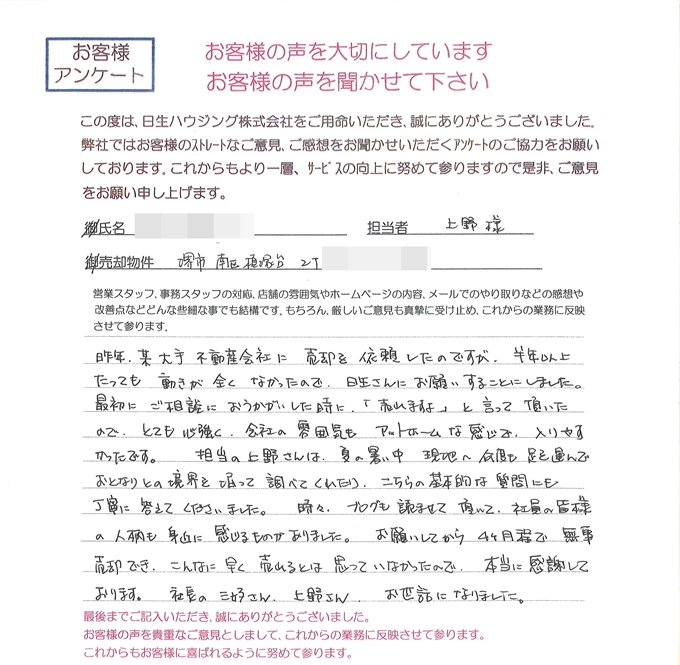 お客様
アンケート
お客様の声を大切にしています
お客様の声を聞かせて下さい
この度は、日生ハウジング株式会社をご用命いただき、誠にありがとうございました。
弊社ではお客様のストレートなご意見、ご感想をお聞かせいただくアンケートのご協力をお願い
しております。これからもより一層、サービスの向上に努めて参りますので是非、ご意見
をお願い申し上げます。
御氏名 担当者 上野様
御売却物件 堺市 南区 槙塚台 2丁
営業スタッフ、事務スタッフの対応、店舗の雰囲気やホームページの内容、メールでのやり取りなどの感想や
改善点などどんな些細な事でも結構です。もちろん、厳しいご意見も真摯に受け止め、これからの業務に反映
させて参ります。
昨年、某大手不動産会社に売却を依頼したのですが、半年以上
たっても動きが全くなかったので、日生さんにお願いすることにしました。
最初にご相談におうかがいした時に、「売れますよ」と言って頂いた
ので、とても心強く、会社の雰囲気もアットホームな感じで、入りやす
かったです。 担当の上野さんは、夏の暑い中 現地へ何度も足を運んで
おとなりとの境界を掘って調べてくれたり、こちらの基本的な質問にも
丁寧に答えてくださいました。 時々、ブログも読ませて頂いて、社員の皆様
の人柄も身近に感じるものがありました。 お願いしてから4ヶ月程で無事
売却でき、こんなに早く売れるとは思っていなかったので、本当に感謝して
おります。 社長の三好さん、上野さん、お世話になりました。
最後までご記入いただき、誠にありがとうございました。
お客様の声を貴重なご意見としまして、これからの業務に反映させて参ります。
これからもお客様に喜ばれるように努めて参ります。